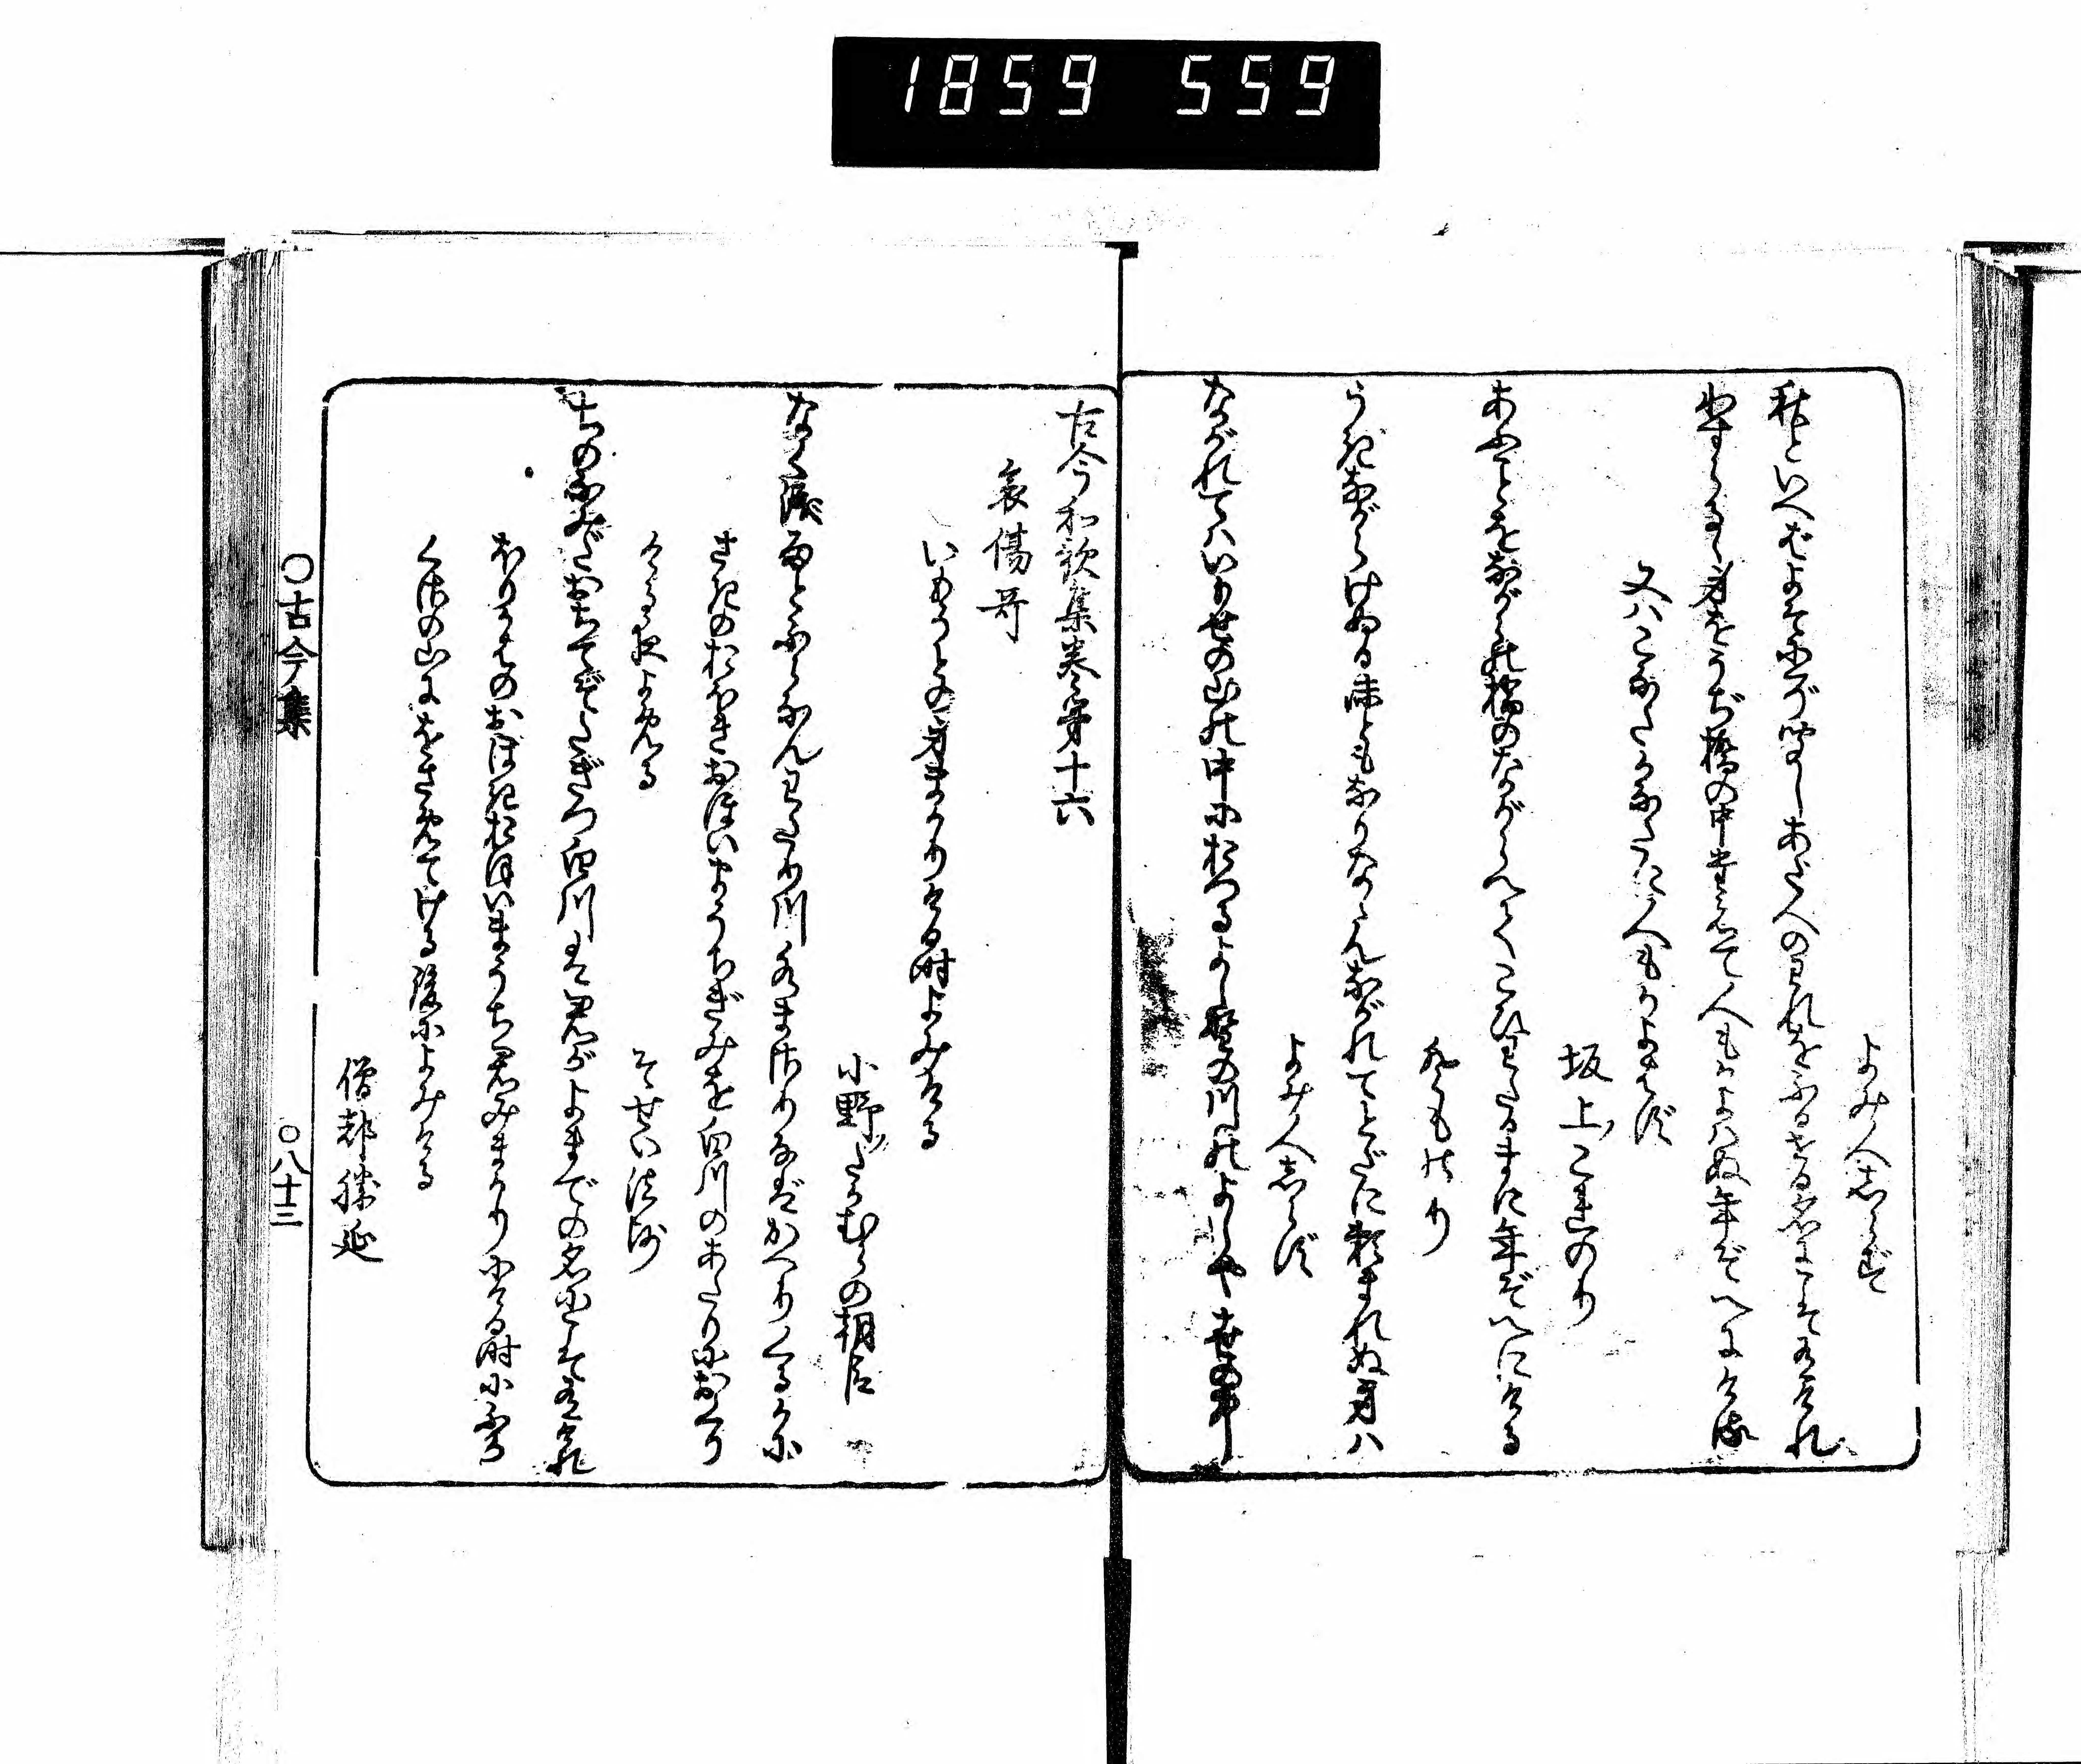 1859 559
よみ人志らず
秋といへばよそにぞ聞しあだ人のわれをふるせる名にこそ有けれ
わするゝ身をうぢ橋の中たえて人もかよハぬ年ぞへにける
又ハこなたかなたに人もかよはず
坂上これのり
あふことをながらの橋のながらへてこひわたるまに年ぞへにける
とものり
うきながらけぬる沫ともなりなゝんながれてとだに頼まれぬ身ハ
よみ人志らず
ながれてハいもせの山の中におつるよし野の川のよしや世の中
古今和歌集巻第十六
哀傷哥
いもうとの身まかりける時よみける
小野ノたかむらの朝臣
なく涙雨とふらなんわたり川水まさりなばかへりくるかに
さきのおほきおほいまうちぎみを白川のあたりにおくり
ける夜よめる
そせい法師
ちのなみだおちてぞたぎつ白川は君がよまでの名にこそ有けれ
ほりかはのおほきおほいまうち君みまかりにける時にふか
くさの山にをさめてける後によみける
僧都勝延
〇古今集
〇八十三